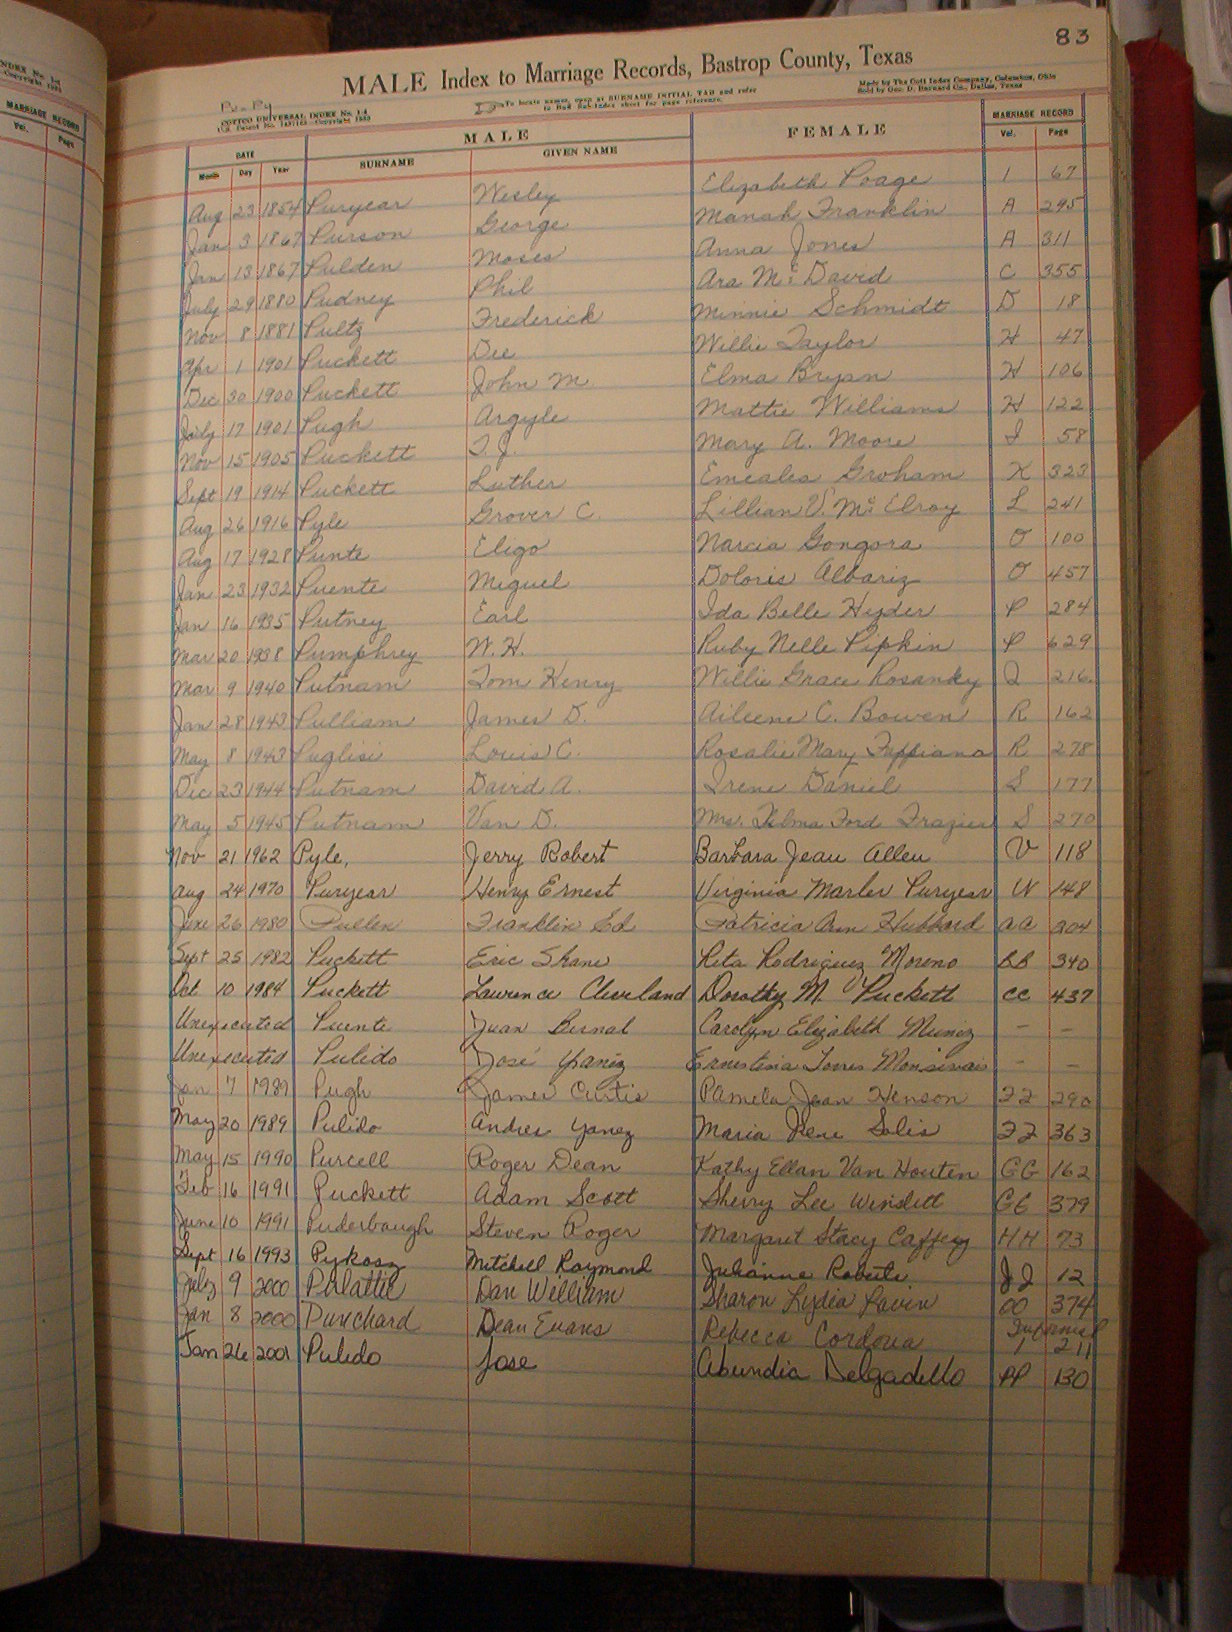 83
MALE Index to Marriage Records, Bastrop County, Texas
Pu-Py
COTTCO UNIVERSAL INDEX No. 1-d
To locate names, open at SURNAME INITIAL TAB and refer
to Bad Sub-Index sheet for page reference.
Made by The Cott Index Company, Columbus, Ohio
Sold by Geo. D. Barnard Co., Dallas, Texas
DATE MALE FEMALE MARRIAGE RECORD
Month Day Year SURNAME GIVEN NAME Vol. Page
Aug 23 1854 Puryear Wesley Elizabeth Poage 1 67
Jan 3 1867 Purson George Manah Franklin A 295
Jan 13 1867 Pulden Moses Anna Jones A 311
July 29 1880 Pudney Phil Ara Mc David C 355
Nov 8 1881 Pultz Frederick Minnie Schmidt D 18
Apr 1 1901 Puckett Dee Willie Taylor H 47
Dec 30 1900 Puckett John M. Elma Bryan H 106
July 17 1901 Pugh Argyle Mattie Williams H 122
Nov 15 1905 Puckett T. J. Mary A. Moore I 58
Sept 19 1914 Puckett Luther Emeales Groham K 323
Aug 26 1916 Pyle Grover C. Lillian V. Mc Elroy L 241
Aug 17 1928 Punte Eligo Narcia Gongora O 100
Jan 23 1932 Puente Miguel Doloris Albariz O 457
Jan 16 1935 Putney Earl Ida Belle Hyder P 284
Mar 20 1938 Pumphrey W. H. Ruby Nelle Pipkin P 629
Mar 9 1940 Putnam Tom Henry Willie Grace Rosanky Q 216
Jan 28 1943 Pulliam James D. Aileene C. Bowen R 162
May 8 1943 Puglisi Louis C. Rosalie Mary Tuffiana R 278
Dec 23 1944 Putnam David A. Irene Daniel S 177
May 5 1945 Putnam Van D. Mrs. Thelma Ford Frazier S 270
Nov 21 1962 Pyle, Jerry Robert Barbara Jean Allen V 118
Aug 24 1970 Puryear Henry Ernest Virginia Marler Puryear W 148
June 26 1980 Pullen Franklin Ed Patricia Ann Hubbard AA 304
Sept 25 1982 Puckett Eric Shane Rita Rodriguez Moreno BB 340
Oct 10 1984 Puckett Lawrence Cleveland Dorothy M Puckett CC 437
Unexecuted Puente Juan Bernal Carolyn Elizabeth Muniz - -
Unexecuted Pulido José Yaniz Ernestina Torres Monsivais - -
Jan 7 1989 Pugh James Curtis Pamela Jean Henson FF 290
May 20 1989 Pulido Andres Yanez Maria Irene Solis FF 363
May 15 1990 Purcell Roger Dean Kathy Ellan Van Houten GG 162
Feb 16 1991 Puckett Adam Scott Sherry Lee Windett GG 379
June 10 1991 Puderbaugh Steven Roger Margaret Stacy Caffery HH 73
Sept 16 1993 Pykosz Mitchell Raymond Julianne Roberts JJ 12
July 9 2000 Dan William Sharon Lydia Pavin OO 374
Jan 8 2000 Punchard Dean Evans Rebecca Cordova Informal 1 211
Jan 26 2001 Pulido Jose Abundia Delgadillo PP 130
NDEX No. 1-d
Copyright 1933
MARRIAGE RECORD
Vol. Page